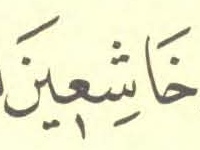 خَاشِعِينَ